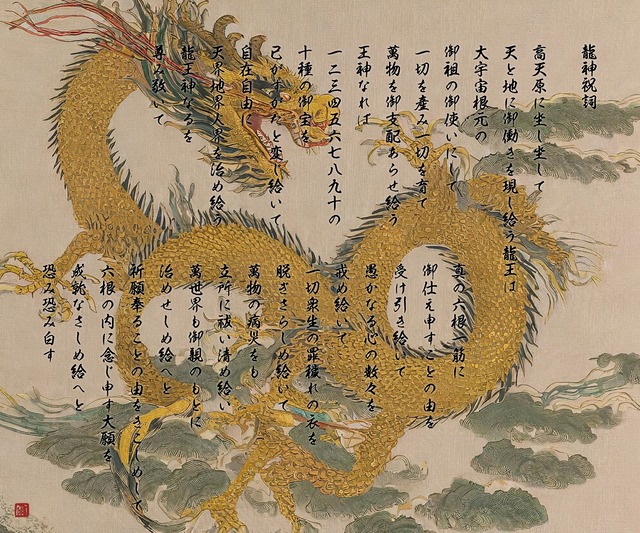 龍神祝詞
高天原に坐し坐して
天と地に御働きを現し給う龍王は
大宇宙根元の
御祖の御使いにして
一切を産み一切を育て
萬物を御支配あらせ給う
王神なれば
一二三四五六七八九十の
十種の御宝を
己がすがたと変じ給いて
自在自由に
天界地界人界を治め給う
龍王神なるを
尊み敬いて
真の六根一筋に
御仕え申すことの由を
受け引き給いて
愚かなる心の数々を
戒め給いて
一切衆生の罪穢れの衣を
脱ぎさらしめ給いて
萬物の病災をも
立所に祓い清め給い
萬世界も御親のもとに
治めせしめ給へと
祈願奉ることの由をきこしめして
六根の内に念じ申す大願を
成就なさしめ給へと
恐み恐み白す